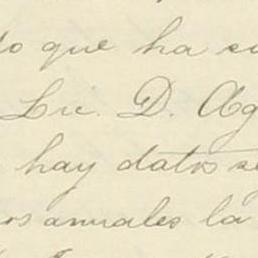 do que ha su
Lic. D. Ag
hay datos se
os anuales la